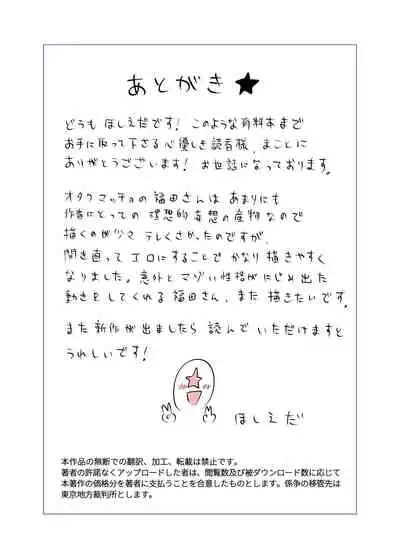 あとがき★
どうも ほしえだです! このような有料本まで
お手に取って下さる心優しき読者様、まことに
ありがとうございます! お世話になっております。
オタクマッチョの福田さんは あまりにも
作者にとっての 理想的妄想の産物なので
描くのが少々 テレくさかったのですが、
開き直ってエロにすることで かなり描きやすく
なりました。意外とマゾい性格がにじみ出た
動きをしてくれる福田さん、また描きたいです。
また新作が出ましたら 読んで いただけますと
うれしいです!
ほしえだ
本作品の無断での翻訳、加工、転載は禁止です。
著者の許諾なくアップロードした者は、閲覧数及び被ダウンロード数に応じて
本著作の価格分を著者に支払うことを合意したものとします。係争の移管先は
東京地方裁判所とします。